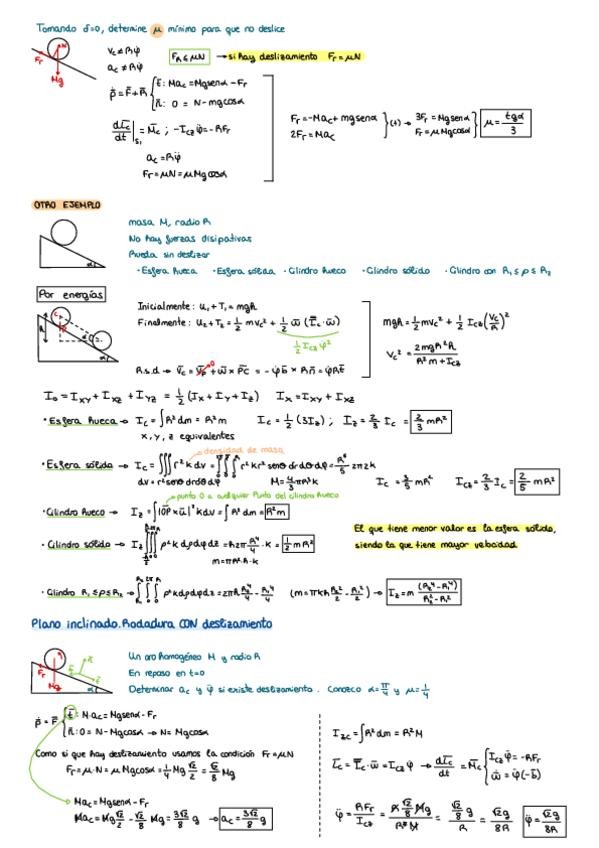 Tomando δ=0, determine μ mínimo para que no deslice
Vc ≠ Rφ̇
ac ≠ Rφ̈
Fr ≤ μN → si hay deslizamiento Fr = μN
Fr N
Mg
ṗ = F + R { t̄: Mac = Mgsenα - Fr
n̄: 0 = N - mgcosα
dL̄c/dt |S₁ = M̄c ; -Icz φ̈ = -RFr
ac = Rφ̈
Fr = μN = μMgcosα
Fr = -Mac + mgsenα
2Fr = Mac } (+) → 3Fr = Mgsenα
Fr = μMgcosα } μ = tgα/3
OTRO EJEMPLO
masa M, radio R
No hay fuerzas disipativas
Rueda sin deslizar
· Esfera hueca · Esfera sólida · Cilindro hueco · Cilindro sólido · Cilindro con R₁ ≤ ρ ≤ R₂
Por energías
Inicialmente: U₁ + T₁ = mgh
Finalmente: U₂ + T₂ = 1/2 mvc² + 1/2 ω̄ (Īc · ω̄)
1/2 Icz φ̇²
R.s.d → V̄c = V̄p + ω̄ × P̄C̄ = -φ̇b̄ × Rn̄ = φ̇Rt̄
mgh = 1/2 mvc² + 1/2 Icz (Vc/R)²
Vc² = 2mgR²h / R²m + Icz
I₀ = Ixy + Ixz + Iyz = 1/2 (Ix + Iy + Iz) Ix = Ixy + Ixz
· Esfera hueca → Ic = ∫R² dm = R²m Ic = 1/2 (3Iz) ; Iz = 2/3 Ic = 2/3 mR²
x, y, z equivalentes
densidad de masa
· Esfera sólida → Ic = ∭ r² k dv = ∭ r² k r² senθ dr dθ dφ = R⁵/5 2π2k Ic = 3/5 mR² Icz = 2/3 Ic = 2/5 mR²
dv = r² senθ dr dθ dφ M = 4/3 πR³k
punto O a cualquier punto del cilindro hueco
· Cilindro hueco → Iz = ∫|O̅P̅ × ū|² k dv = ∫R² dm = R²m
· Cilindro sólido → Iz ∭ ρ² k ρ dρ dφ dz = h2π R⁴/4 · k = 1/2 mR²
m = πR²·h·k
El que tiene menor valor es la esfera sólida,
siendo la que tiene mayor velocidad
· Cilindro R₁ ≤ ρ ≤ R₂ → ∭ ρ² k ρ dρ dφ dz = 2πh R₂⁴/4 - R₁⁴/4 (m = πkh R₂²/2 - R₁²/2) → Iz = m (R₂⁴ - R₁⁴) / R₂² - R₁²
Plano inclinado. Rodadura CON deslizamiento
Un aro homogéneo M y radio R
En reposo en t=0
Determinar ac y φ̈ si existe deslizamiento. Conozco α = π/4 y μ = 1/4
Fr Mg
ṗ = F̄ { t̄: M·ac = Mgsenα - Fr
n̄: 0 = N - Mgcosα → N = Mgcosα
Como si que hay deslizamiento usamos la condición Fr = μN
Fr = μ·N = μ Mgcosα = 1/4 Mg √2/2 = √2/8 Mg
Mac = Mgsenα - Fr
Mac = Mg √2/2 - √2/8 Mg = 3√2/8 g → ac = 3√2/8 g
Izc = ∫R² dm = R²M
L̄c = Īc · ω̄ = Icz φ̇ → dL̄c/dt = M̄c { Icz φ̈ = -RFr
ω̄ = φ̇(-b̄)
φ̈ = RFr/Icz = R √2/8 Mg / R²M = √2/8 g / R = √2g/8R φ̈ = √2g/8R